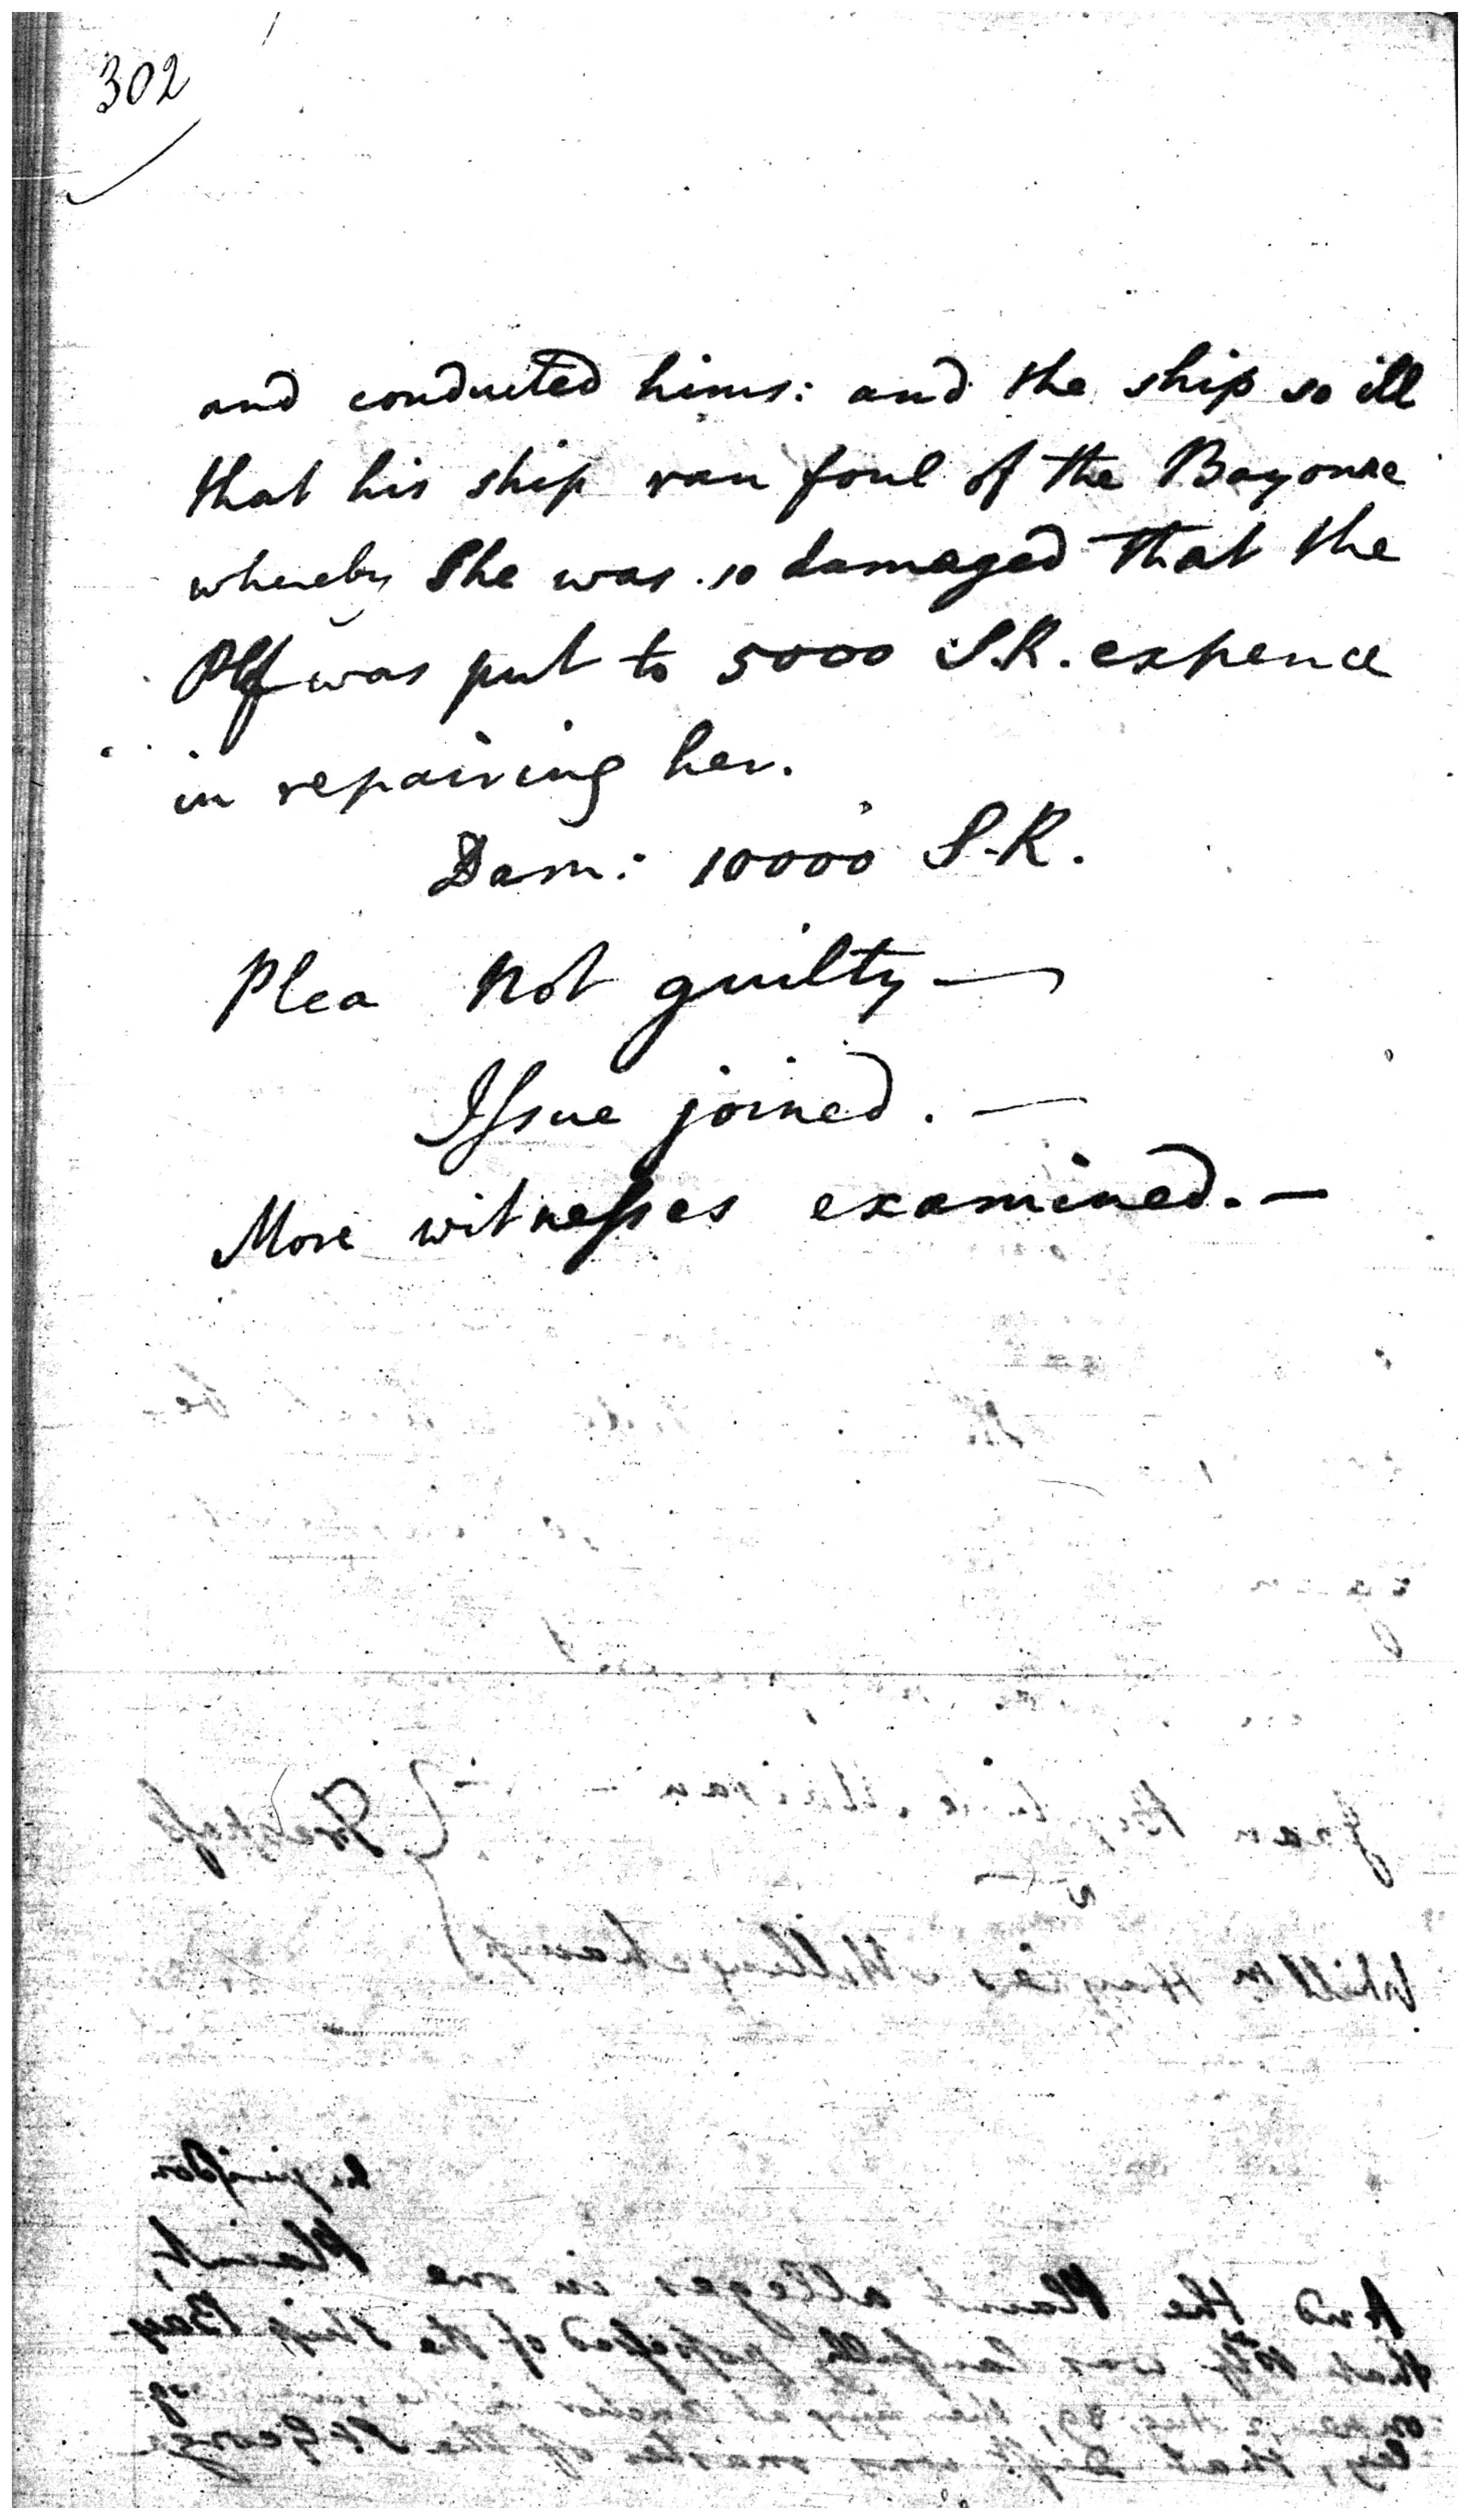 302
and conducted hims: and the ship so ill
that his ship ran foul of the Bayonne
whereby She was so damaged that the
Plf was put to 5000 S.R. expence
in repairing her.
Dam: 10000 S.R.
Plea Not guilty —
Issue joined. —
More witnesses examined. —